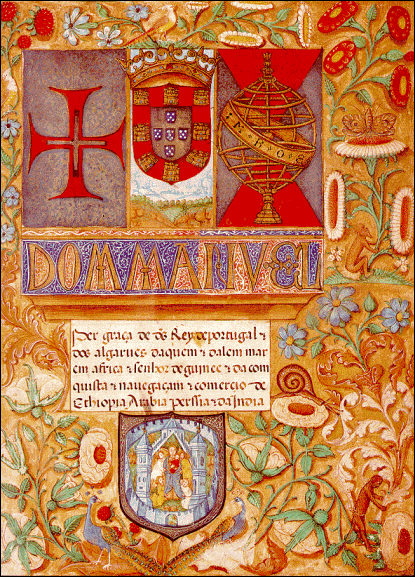 DOM MANVEL
Per graça de dõs Rey de portugal &
dos algarues daquem & dalem mar
em africa & senhor de guinee & da com
quista & nauegaçam & comercio de
Ethiopia Arabia perssia & da India